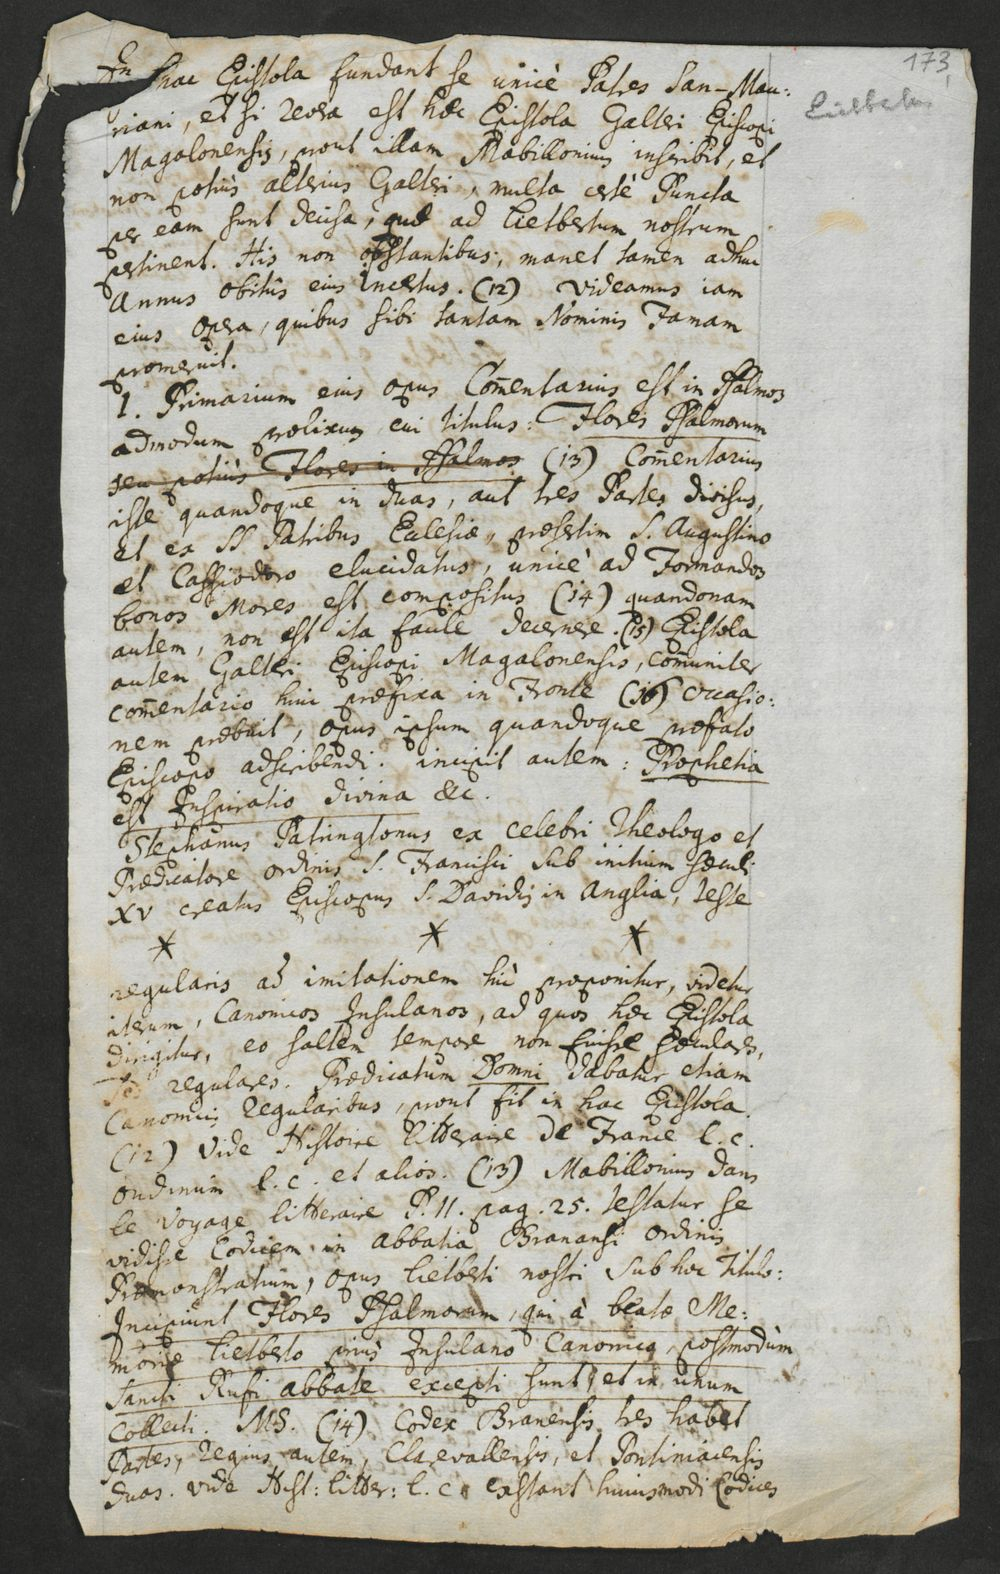 173
Lietbertus
In hac Epistola fundant se unicè Patres San-Mau:
riani, et si revera est hæc Epistola Galteri Episcopi
Magalonensis, prout illam Mabillonius inscribit, et
non potiùs alterius Galteri, multa certè Puncta
per eam sunt decisa, quæ ad Lietbertum nostrum
pertinent. His non obstantibus, manet tamen adhuc
Annus obitûs eius incertus. (12) Videamus iam
eius opera, quibus sibi tantam Nominis Famam
promeruit.
1. Primarium eius opus Com̄entarius est in Psalmos
admodum prolixus cui titulus: Flores Psalmorum
seu potiùs Flores in Psalmos (13) Com̄entarius
iste quandoque in duas, aut tres Partes divisus,
et ex SS Patribus Eclesiæ, præsertim S. Augustino
et Cassiodoro elucidatus, unicè ad Formandos
bonos Mores est compositus (14) quandonam
autem, non est ita facile decernere. (15) Epistola
autem Galteri Episcopi Magalonensis, com̄uniter
com̄entario huic præfixa in Fronte (16) occasio:
nem præbuit, opus ipsum quandoque præfato
Episcopo adscribendi. incipit autem: Prophetia
est Inspiratio divina &c.
Stephanus Patringtonus ex celebri Theologo et
Prædicatore ordinis S. Francisci sub initium sæculi
XV creatus Episcopus S. Davidis in Anglia, teste
* * *
regularis ad imitationem hîc proponitur, videtur
iterum, Canonicos Insulanos, ad quos hæc Epistola
dirigitur, eo saltem tempore non fuisse sæculares,
sed regulares. Prædicatum Domni dabatur etiam
Canonicis Regularibus, prout fit in hac Epistola.
(12) Vide Histoire litteraire de France l. c.
Oudinum l. c. et alios. (13) Mabillonius dans
le Voyage litteraire P. 11. pag. 25. testatur se
vidisse Codicem in abbatia Branansi ordinis
Præmonstratium, opus Lietberti nostri sub hoc titulo:
Incipiunt Flores Psalmorum, qui à beatæ Me:
moriæ Lietberto priùs Insulano Canonico, postmodùm
Sancti Rufi abbate excepti sunt, et in unum
Collecti. MS. (14) Codex Branensis tres habet
Partes, Regius autem, Clarevallensis, et Pontiniacensis
duas. vide Hist: litter: l. c. exstant huiusmodi Codices